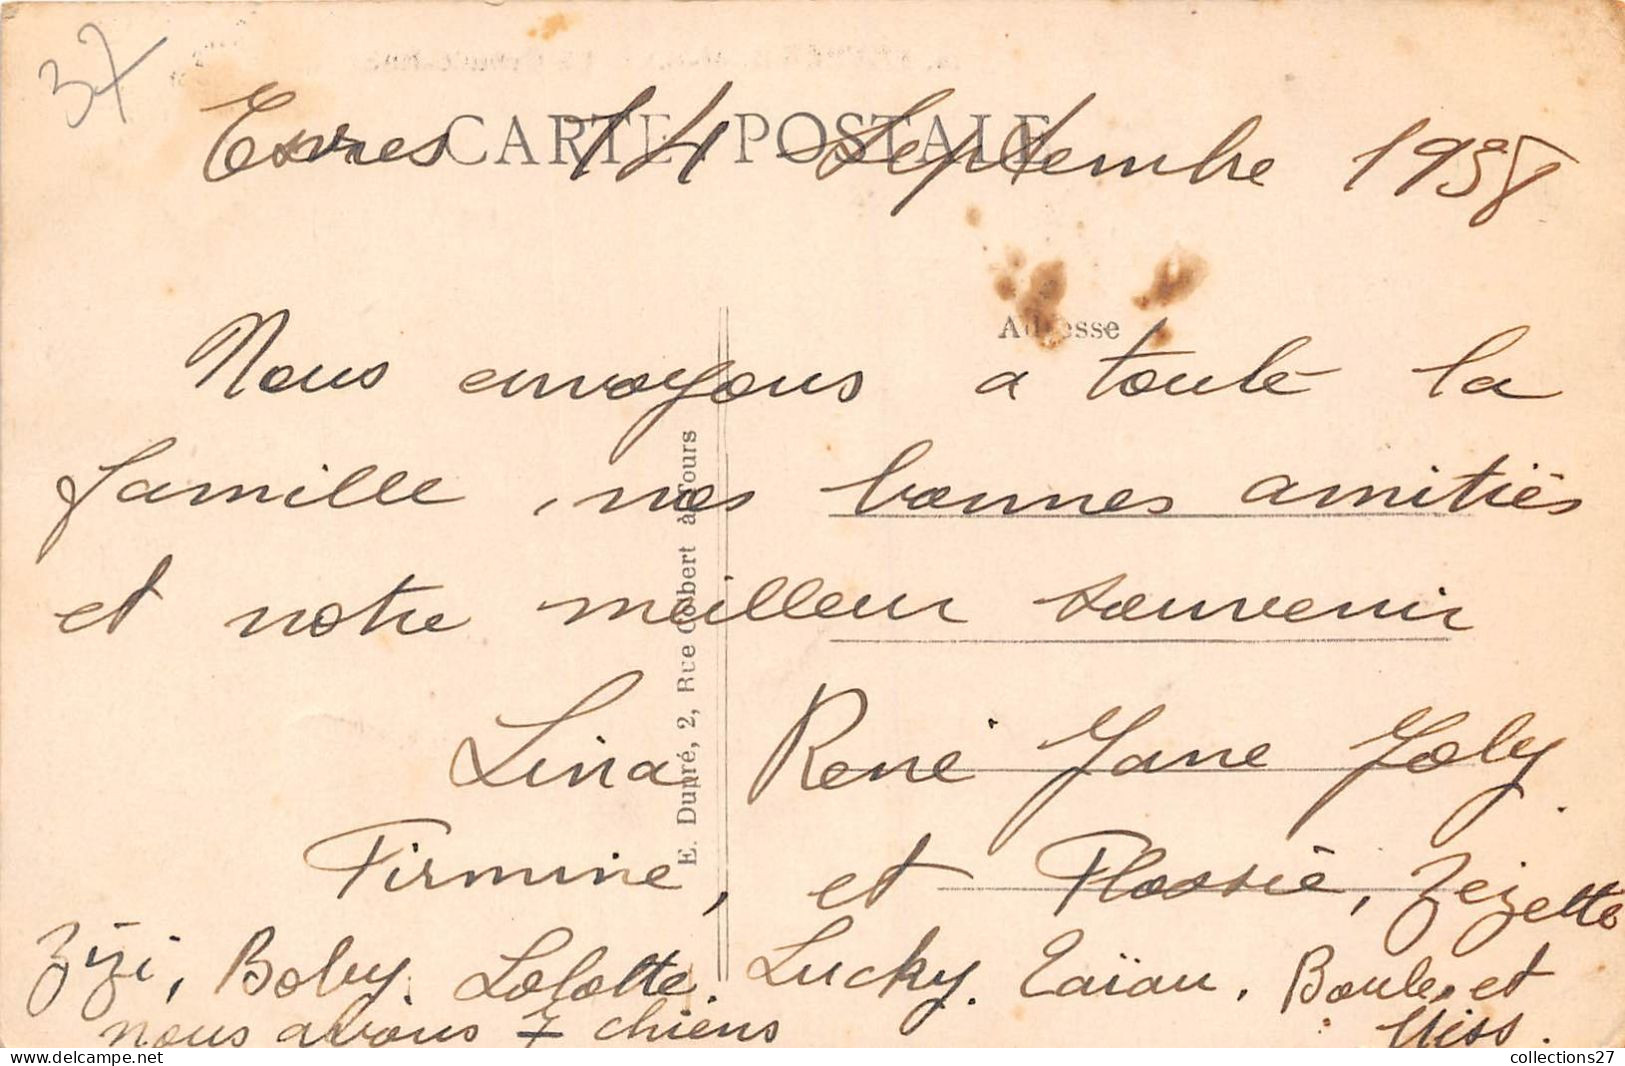 37
CARTE POSTALE
Esvres 14 Septembre 1938
Adresse
Nous envoyons a toute la
famille, nos bonnes amitiés
et notre meilleur souvenir
Lina René Jane Joly.
Firmine, et Flossie, Zezette
Zizi, Boby. Lolotte. Lucky. Taïau. Boule, et
nous avons 7 chiens Miss.
E. Dupré, 2, Rue Colbert à Tours
collections27